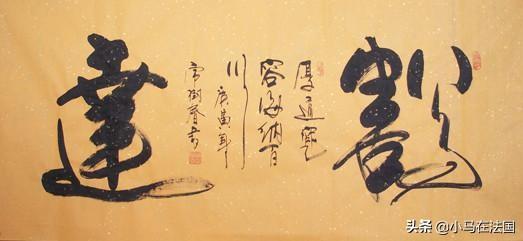 豁
厚道寬
容海納百
川 庚寅年
樹春書
達
头条 @小马在法国